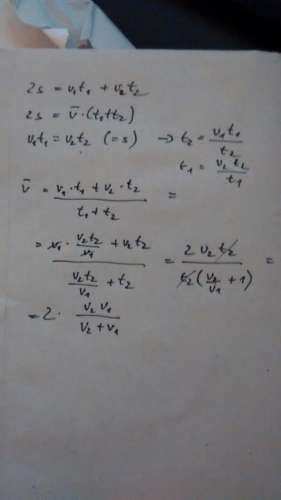 2s = v₁t₁ + v₂t₂
2s = v̄ · (t₁+t₂)
v₁t₁ = v₂t₂ (= s) → t₂ = v₁t₁ / t₂
t₁ = v₂t₂ / t₁
v̄ = (v₁ · t₁ + v₂ · t₂) / (t₁ + t₂) =
= (v₁ · (v₂t₂ / v₁) + v₂t₂) / ((v₂t₂ / v₁) + t₂) = 2 v₂ t₂ / (t₂ (v₂/v₁ + 1)) =
= 2 · (v₂ v₁) / (v₂ + v₁)